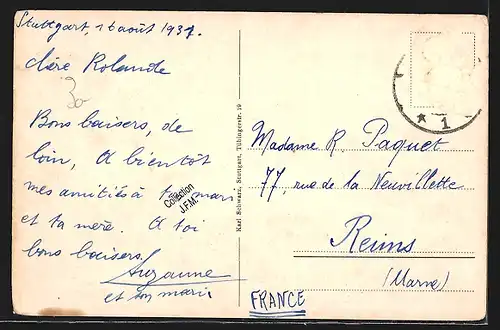 Stuttgart, 16 août 1937.
Chère Rolande
30
Bons baisers, de
loin, A bientôt
mes amitiés à ta mari
et ta mère. A toi
bons baisers.
Suzanne
et son mari
Collection
J.F.M.
Karl Schwarz, Stuttgart, Tübingerstr. 19
Madame R. Paquet
77, rue de la Neuvillette
Reims
(Marne)
FRANCE
* 1